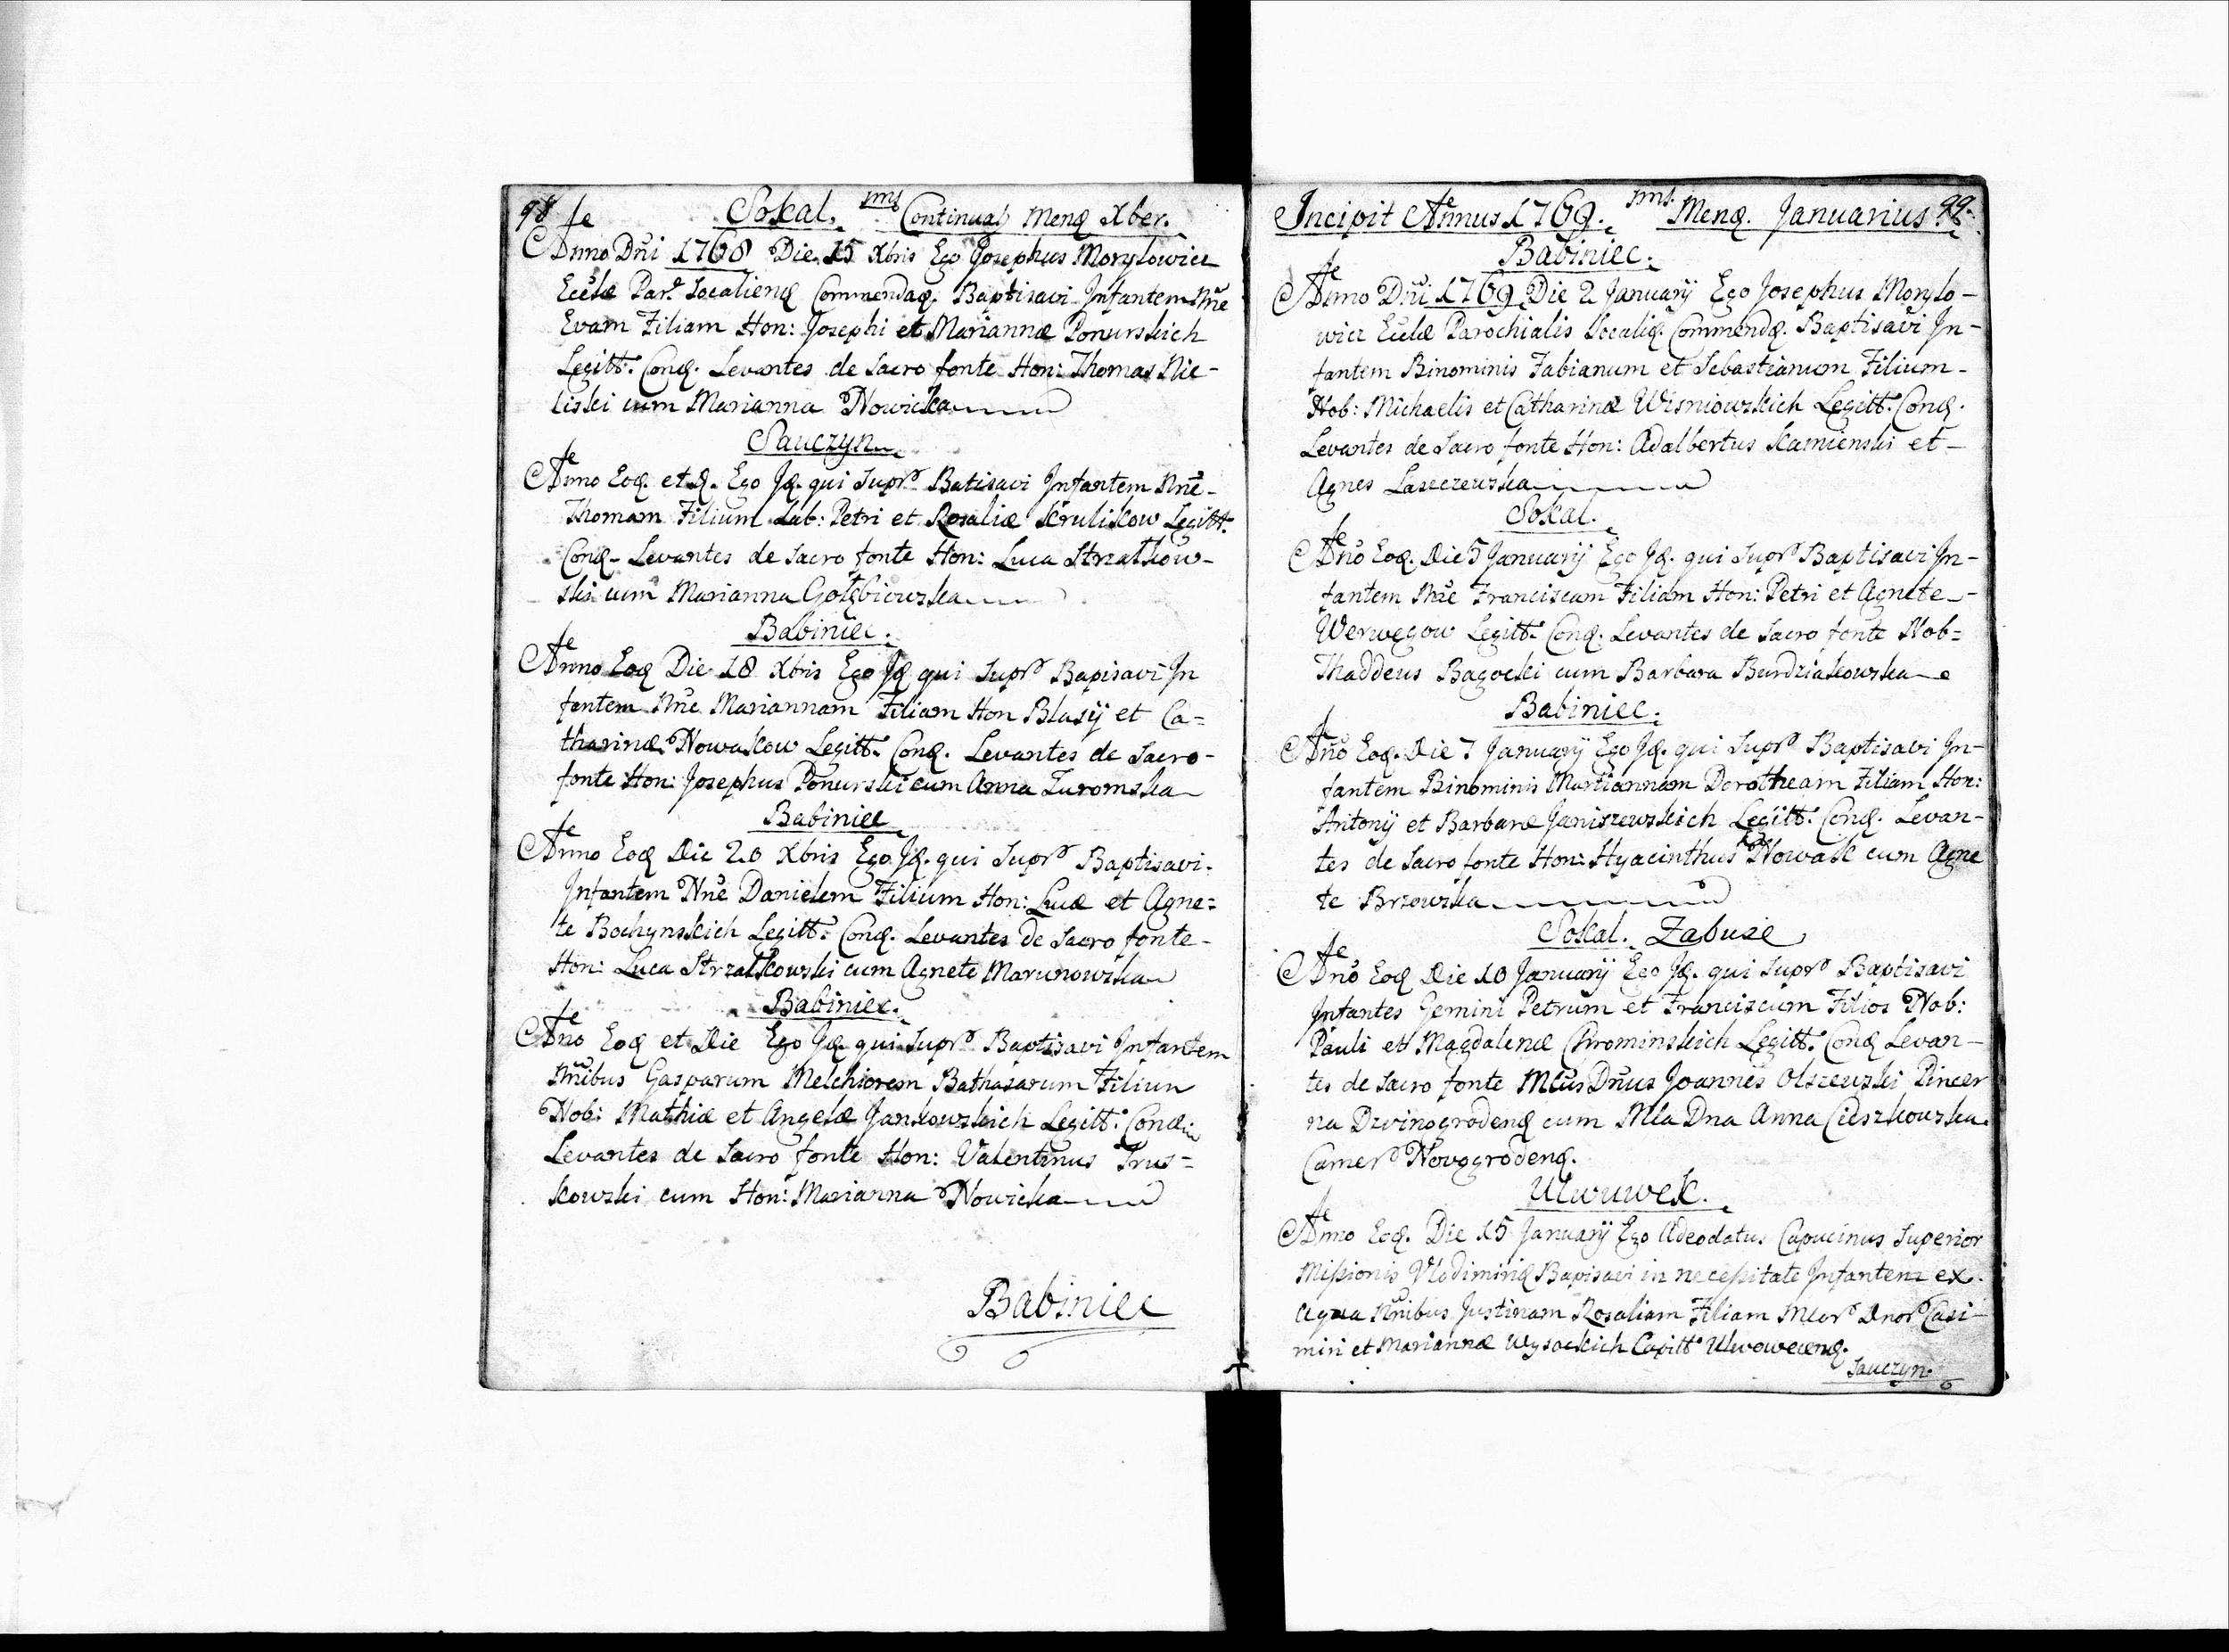 98 Sokal. Continuat Menq Xber.
Anno Dni 1768 Die 15 Xbris Ego Josephus Morylowicz
Ecclæ Par. Socalienq Commendaq. Baptisavi Infantem Nne
Evam Filiam Hon: Josephi et Mariannæ Ponurskich
Legitt. Conq. Levantes de Sacro fonte Hon: Thomas Nie-
liski cum Marianna Nowicka
Sauczyn
Anno Eoq. et D. Ego Jq. qui Supr. Batisavi Infantem Nne-
Thomam Filium Lab: Petri et Rosaliæ Krulikow Legitt.
Conq- Levantes de Sacro fonte Hon: Luca Strzałkow-
ski cum Marianna Gołębiowska
Babiniec.
Anno Eoq Die 18 Xbris Ego Jq qui Supr. Bapisavi In
fantem Nne Mariannam Filiam Hon Blasÿ et Ca=
tharinæ Nowakow Legitt. Conq. Levantes de Sacro-
fonte Hon: Josephus Ponurski cum Anna Zuromska
Babiniec
Anno Eoq Die 20 Xbris Ego Jq. qui Supr. Baptisavi.
Infantem Nne Danielem Filium Hon: Lucæ et Agne=
te Bochynskich Legitt. Conq. Levantes de Sacro fonte-
Hon: Luca Strzałkowski cum Agnete Marunowska
Babiniec.
Ano Eoq et Die Ego Jq. qui Supr. Baptisavi Infantem
Nnibus Gasparum Melchiorem Bathasarum Filiun
Nob: Mathiæ et Angelæ Jankowskich Legitt. Conq.
Levantes de Sacro fonte Hon: Valentinus Trus=
kowski cum Hon: Marianna Nowicka
Babiniec
Incipit Annus 1769. Menq. Januarius 99.
Babiniec.
Anno Dni 1769 Die 2 Januarÿ Ego Josephus Morylo-
wicz Ecclæ Parochialis Socaliq. Commendq. Baptisavi In-
fantem Binominis Fabianum et Sebastianum Filium-
Nob: Michaelis et Catharinæ Wisniowskich Legitt. Conq.
Levantes de Sacro fonte Hon: Adalbertus Kamienski et-
Agnes Laszczewska
Sokal.
Ano Eoq. Die 5 Januarÿ Ego Jq. qui Supr. Baptisavi In-
fantem Nne Franciscam Filiam Hon: Petri et Agnete-
Werwęgow Legitt. Conq. Levantes de Sacro fonte Nob=
Thaddeus Bagocki cum Barbara Burdziakowska
Babiniec.
Ano Eoq. Die 7 Januarÿ Ego Jq. qui Supr. Baptisavi In-
fantem Binominis Mariannam Dorotheam Filiam Hon:
Antonÿ et Barbaræ Janiszewskich Legitt. Conq. Levan-
tes de Sacro fonte Hon: Hyacinthus Nowak cum Agne
te Brzowska
Sokal. Zabuze
Ano Eoq Die 10 Januarÿ Ego Jq. qui Supr. Baptisavi
Infantes Gemini Petrum et Franciscum Filios Nob:
Pauli et Magdalenæ Chrominskich Legitt. Conq Levan-
tes de Sacro fonte Mcus Dnus Joannes Olszewski Pincer
na Dzvinogrodenq cum Mla Dna Anna Cieszkowska.
Camer. Novogrodenq.
Uhruwek.
Anno Eoq. Die 15 Januarÿ Ego Adeodatus Capucinus Superior
Missionis Vlodimiriq Bapisavi in necessitate Infantem ex.
Aqua Nnibus Justinam Rosaliam Filiam Mcor. Dnor. Casi-
miri et Mariannæ Wysockich Capitt. Uhrowecenq.
Sauczyn.